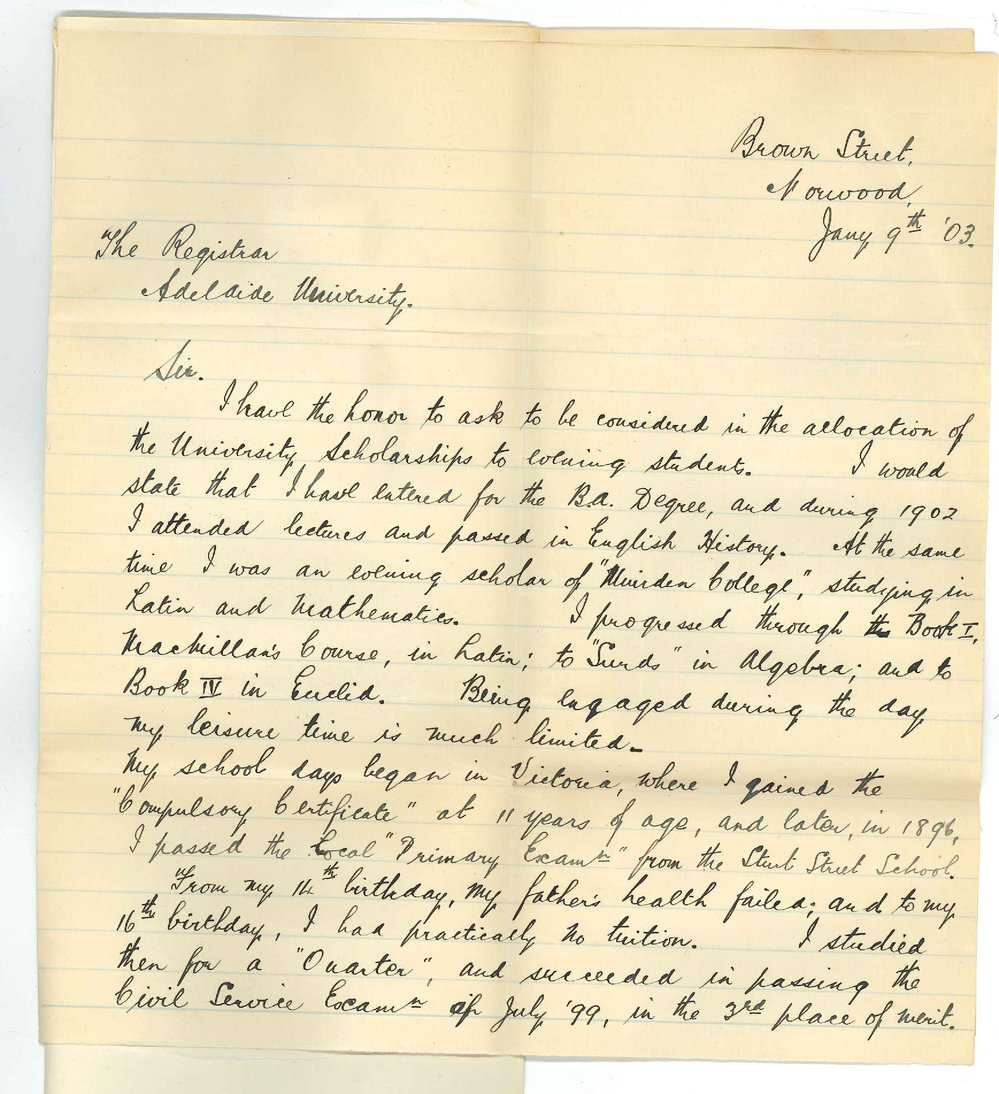 Brown Street,
Norwood,
Jany 9th '03.
The Registrar
Adelaide University.
Sir.
I have the honor to ask to be considered in the allocation of
the University Scholarships to evening students. I would
state that I have entered for the B.A. Degree, and during 1902
I attended lectures and passed in English History. At the same
time I was an evening scholar of "Muirden College", studying in
Latin and Mathematics. I progressed through the Book I,
Macmillan's Course, in Latin; to "Surds" in Algebra; and to
Book IV in Euclid. Being engaged during the day
my leisure time is much limited.
My school days began in Victoria, where I gained the
"Compulsory Certificate" at 11 years of age, and later, in 1896,
I passed the local "Primary Examn" from the Sturt Street School.
From my 14th birthday, my father's health failed; and to my
16th birthday, I had practically no tuition. I studied
then for a "Quarter", and succeeded in passing the
Civil Service Examn of July '99, in the 3rd place of merit.